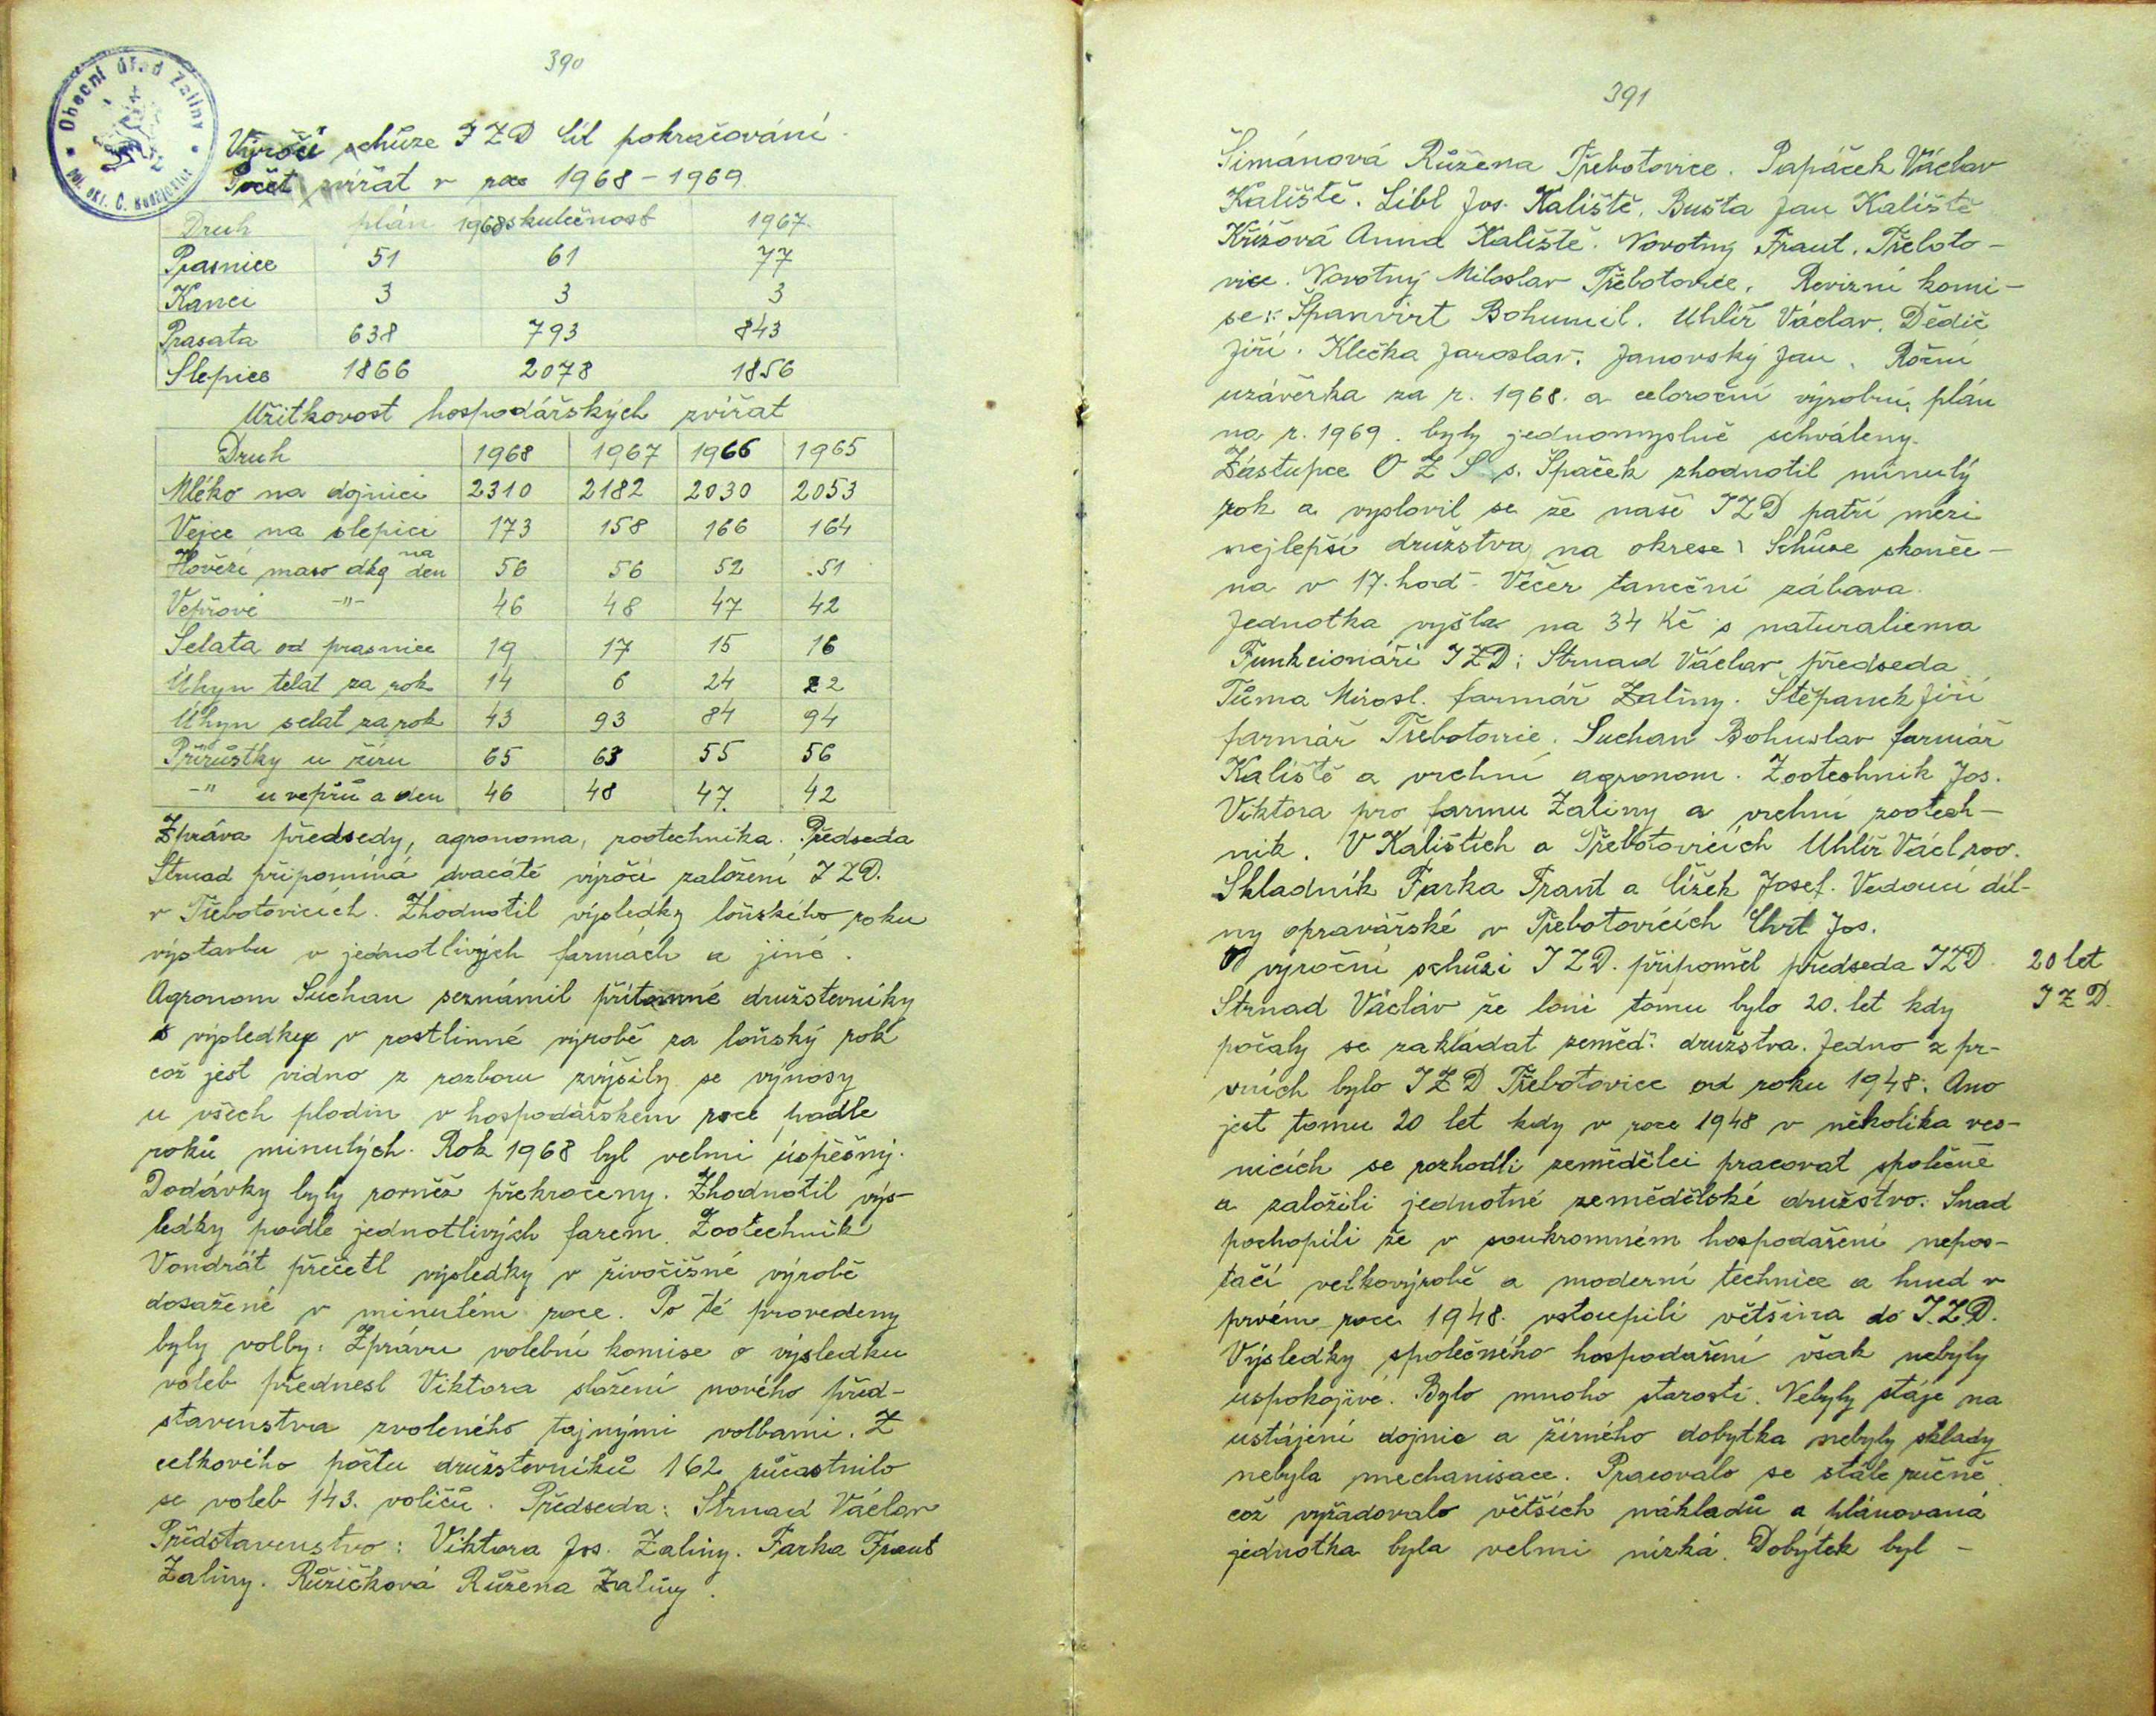 390
Obecní úřad Zaliny
Výročí schůze JZD Líl pokračování.
Počet zvířat v roce 1968-1969.
Druh plán 1968 skutečnost 1967.
Prasnice 51 61 77
Kanci 3 3 3
Prasata 638 793 843
Slepice 1866 2078 1856
Užitkovost hospodářských zvířat
Druh 1968 1967 1966 1965
Mléko na dojnici 2310 2182 2030 2053
Vejce na slepici 173 158 166 164
Hovězí maso dkg na den 56 56 52 51
Vepřové -"- 46 48 47 42
Selata od prasnice 19 17 15 16
Úhyn telat za rok 14 6 24 22
Úhyn selat za rok 43 93 84 94
Přírůstky u žíru 65 63 55 56
-" u vepřů a den 46 48 47. 42
Zpráva předsedy, agronoma, zootechnika. Předseda
Strnad připomíná dvacáté výročí založení JZD.
v Třebotovicích. Zhodnotil výsledky loňského roku
výstavbu v jednotlivých farmách a jiné.
Agronom Suchan seznámil přítomné družstevníky
s výsledky v rostlinné výrobě za loňský rok
což jest vidno z rozboru zvýšily se výnosy
u všech plodin v hospodářském roce podle
roků minulých. Rok 1968 byl velmi úspěšný.
Dodávky byly rovněž překročeny. Zhodnotil výs-
ledky podle jednotlivých farem. Zootechnik
Vondrát přečetl výsledky v živočišné výrobě
dosažené v minulém roce. Po té provedeny
byly volby. Zprávu volební komise o výsledku
voleb přednesl Viktora složení nového před-
stavenstva zvoleného tajnými volbami. Z
celkového počtu družstevníků 162 zúčastnilo
se voleb 143. voličů. Předseda: Strnad Václav
Představenstvo: Viktora Jos. Zaliny. Farka Frant
Zaliny. Růžičková Růžena Zaliny.
391
Šimánová Růžena Třebotovice. Papáček Václav
Kaliště. Líbl Jos. Kaliště. Bušta Jan Kaliště
Křížová Anna Kaliště. Novotný Frant. Třeboto-
vice. Novotný Miloslav Třebotovice. Revizní komi-
se: Španvirt Bohumil. Uhlíř Václav. Dědič
Jiří. Klečka Jaroslav. Janovský Jan. Roční
uzávěrka za r. 1968. a celoroční výrobní plán
na r. 1969. byly jednomyslně schváleny.
Zástupce O Z S s. Špaček zhodnotil minulý
rok a vyslovil se že naše JZD patří mezi
nejlepší družstva na okrese. Schůze skonče-
na v 17. hod. Večer taneční zábava.
Jednotka vyšla na 34 Kč s naturaliema
Funkcionáři JZD: Strnad Václav předseda
Tůma Mirosl. farmář Zaliny. Štěpanek Jiří
farmář Třebotovice. Suchan Bohuslav farmář
Kaliště a vrchní agronom. Zootechnik Jos.
Viktora pro farmu Zaliny a vrchní zootech-
nik. V Kalištích a Třebotovicích Uhlíř Václ zoo.
Skladník Farka Frant a Cížek Josef. Vedoucí díl-
ny opravářské v Třebotovicích Chrt Jos.
O výroční schůzi JZD. připoměl předseda JZD. 20 let
Strnad Václav že loni tomu bylo 20. let kdy JZD.
počaly se zakládat zeměd. družstva. Jedno z pr-
vních bylo JZD Třebotovice od roku 1948. Ano
jest tomu 20 let kdy v roce 1948 v několika ves-
nicích se rozhodli zemědělci pracovat společně
a založili jednotné zemědělské družstvo. Snad
pochopili že v soukromném hospodaření nepos-
tačí velkovýrobě a moderní technice a hned v
prvém roce 1948. vstoupili většina do J.Z.D.
Výsledky společného hospodaření však nebyly
uspokojivé. Bylo mnoho starostí. Nebyly stáje na
ustájení dojnic a žírného dobytka nebyly sklady
nebyla mechanisace. Pracovalo se stále ručně
což vyžadovalo větších nákladů a plánovaná
jednotka byla velmi nízká. Dobytek byl -